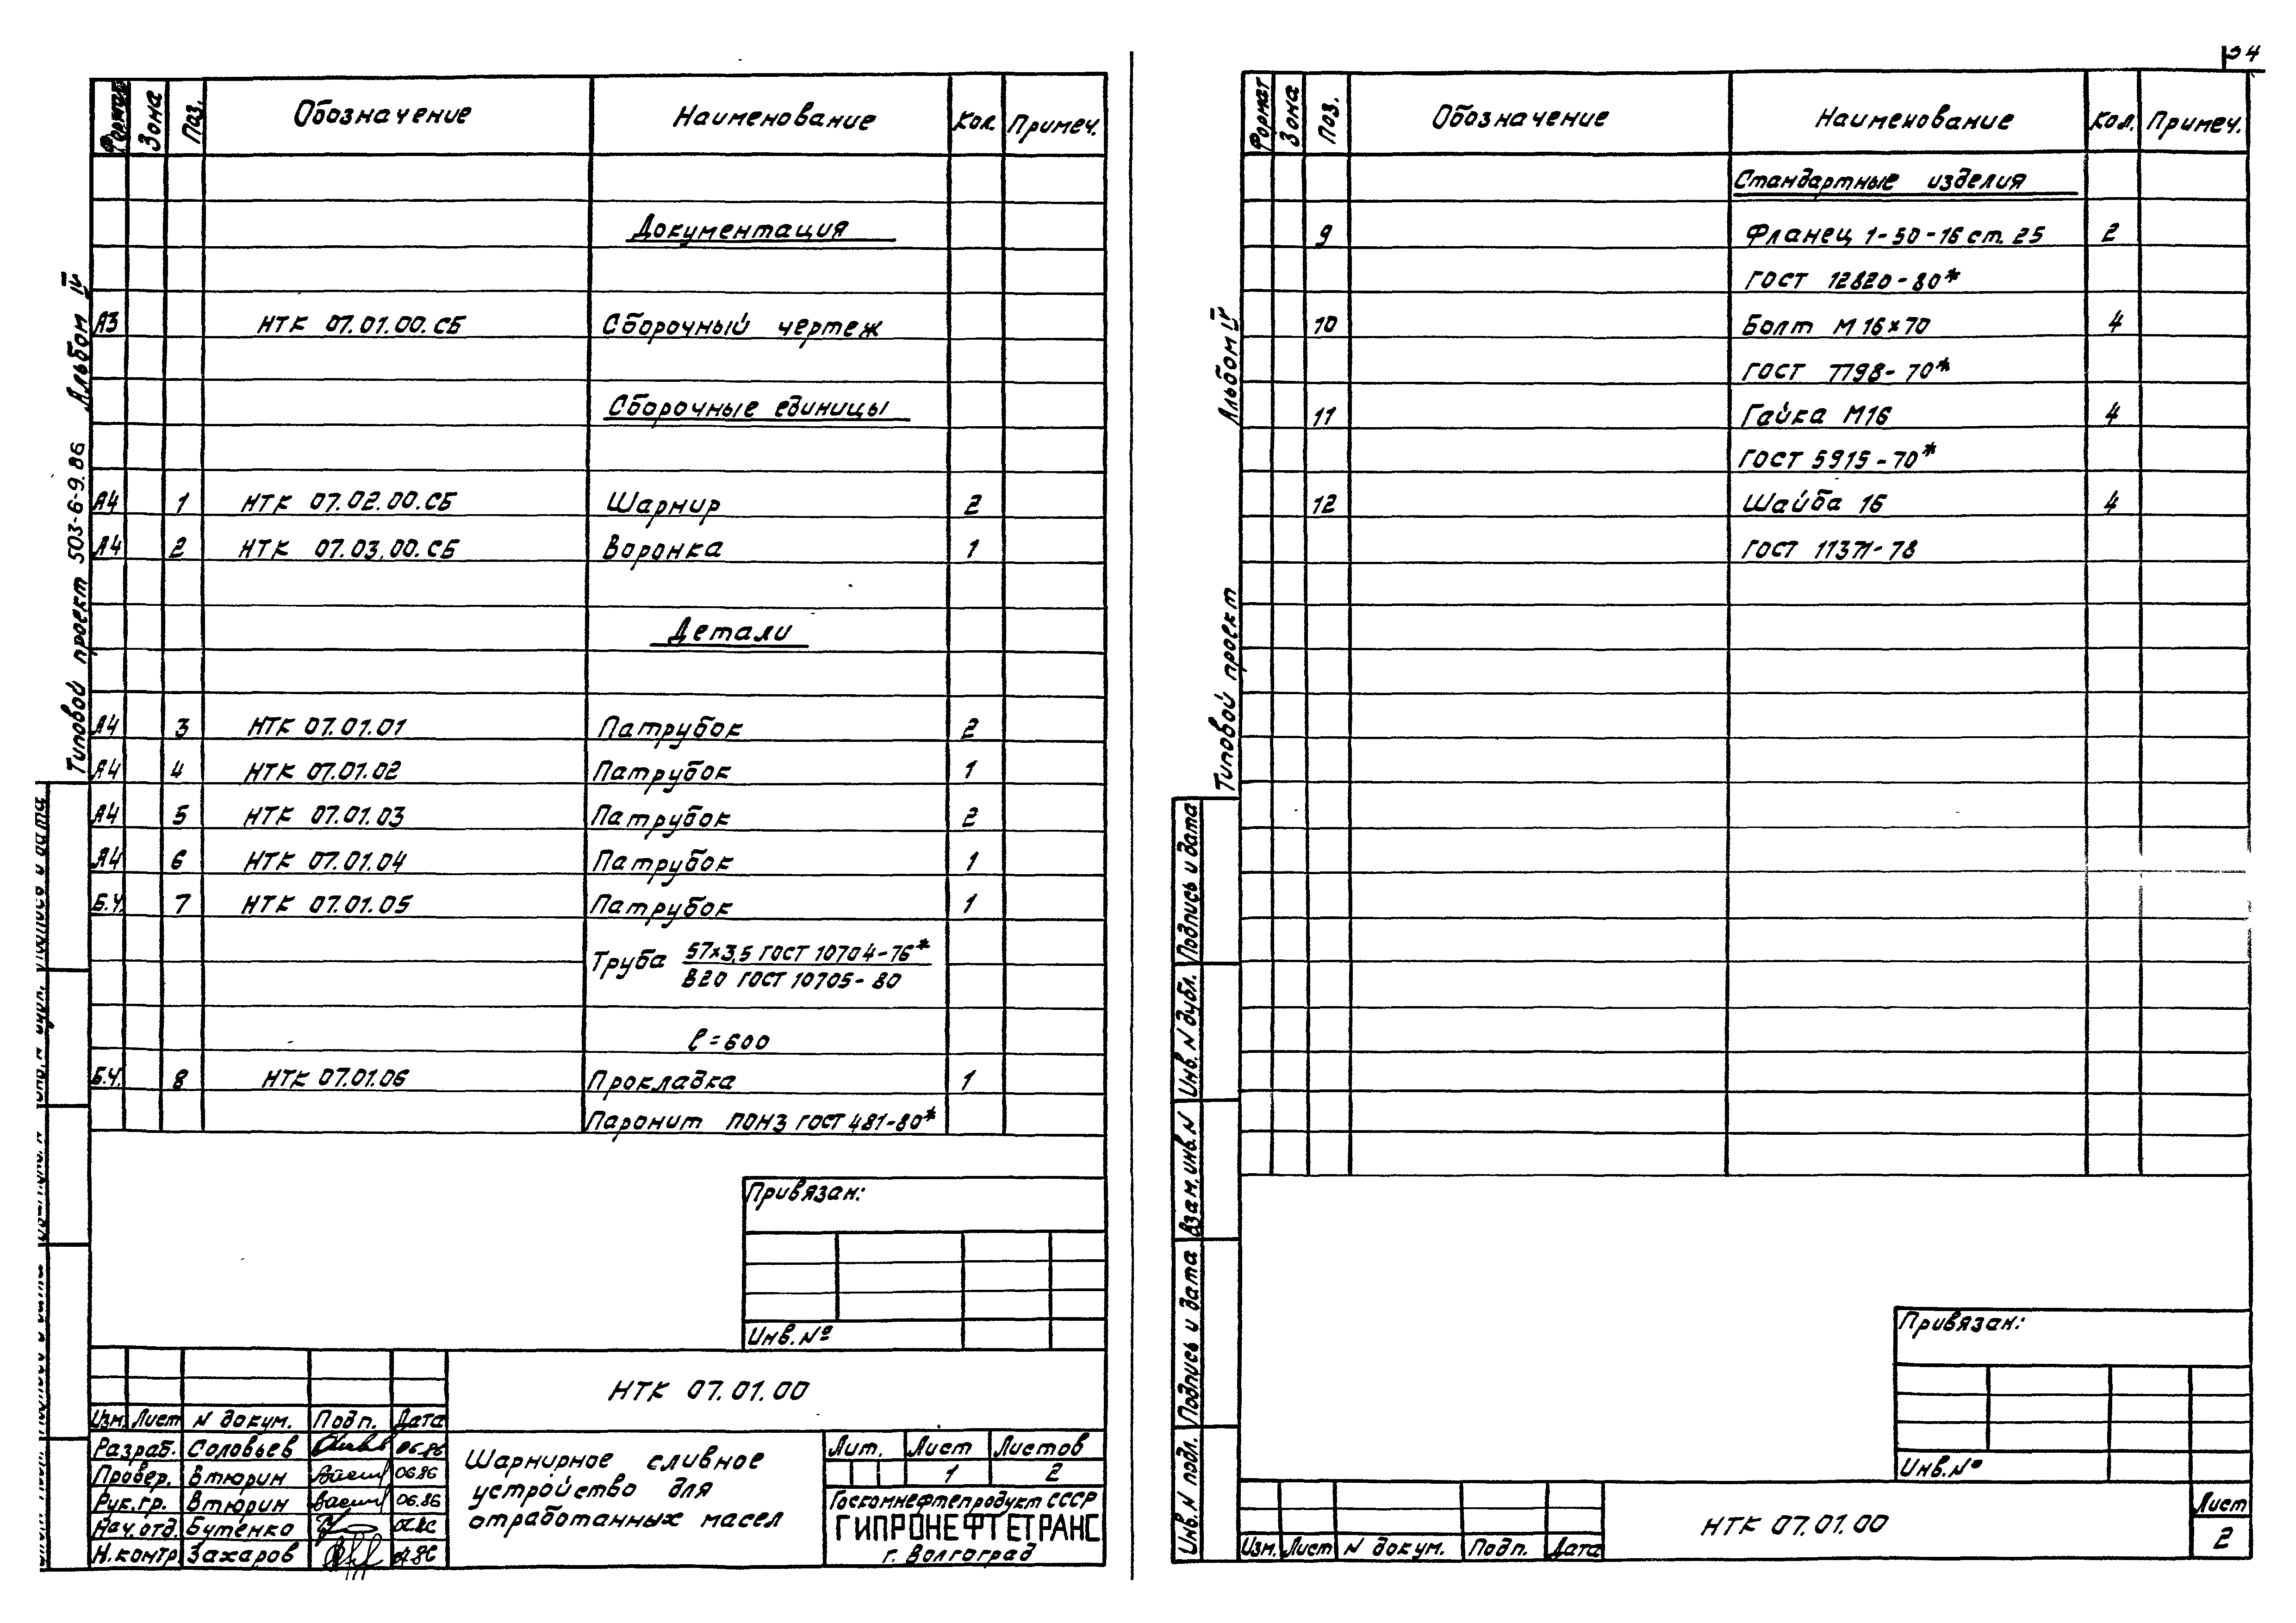 Формат Зона Поз. Обозначение Наименование Кол. Примеч.
Документация
А3 НТК 07.01.00.СБ Сборочный чертеж
Сборочные единицы
А4 1 НТК 07.02.00.СБ Шарнир 2
А4 2 НТК 07.03.00.СБ Воронка 1
Детали
А4 3 НТК 07.01.01 Патрубок 2
А4 4 НТК 07.01.02 Патрубок 1
А4 5 НТК 07.01.03 Патрубок 2
А4 6 НТК 07.01.04 Патрубок 1
Б.Ч. 7 НТК 07.01.05 Патрубок 1
Труба 57×3,5 ГОСТ 10704-76*
В20 ГОСТ 10705-80
ℓ=600
Б.Ч. 8 НТК 07.01.06 Прокладка 1
Паронит ПОН3 ГОСТ 481-80*
Типовой проект 503-6-9.86 Альбом IV
Привязан:
Инв.№
НТК 07.01.00
Изм. Лист N докум. Подп. Дата
Разраб. Соловьев 06.86
Провер. Втюрин 06.86
Рук.гр. Втюрин 06.86
Нач.отд. Бутенко
Н.контр Захаров
Шарнирное сливное
устройство для
отработанных масел
Лит. Лист Листов
1 2
Госкомнефтепродукт СССР
ГИПРОНЕФТЕТРАНС
г. Волгоград
34
Формат Зона Поз. Обозначение Наименование Кол. Примеч.
Стандартные изделия
9 Фланец 1-50-16 ст. 25 2
ГОСТ 12820-80*
10 Болт М16×70 4
ГОСТ 7798-70*
11 Гайка М16 4
ГОСТ 5915-70*
12 Шайба 16 4
ГОСТ 11371-78
Типовой проект Альбом IV
Инв. N подл. Подпись и дата Взам. инв. N Инв. N дубл. Подпись и дата
Привязан:
Инв.№
Изм. Лист N докум. Подп. Дата
НТК 07.01.00
Лист
2